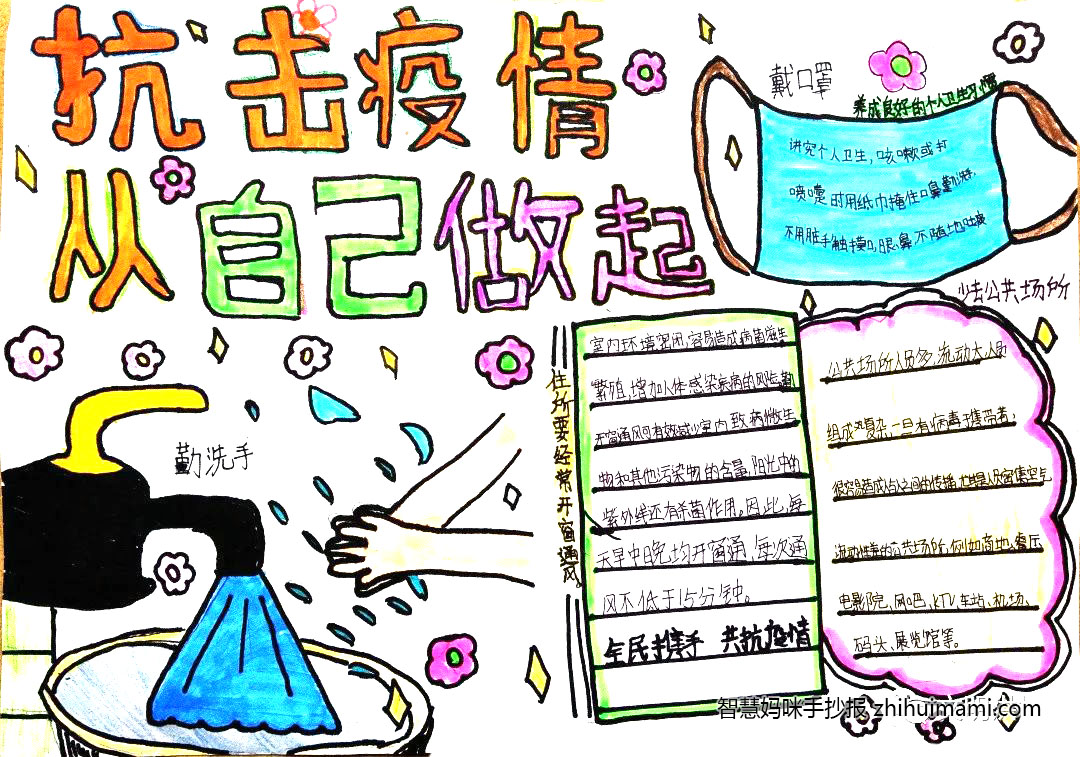 抗击疫情
从自己做起
戴口罩
养成良好的个人卫生习惯
讲究个人卫生，咳嗽或打
喷嚏时用纸巾掩住口鼻，勤洗手，
不用脏手触摸口、眼、鼻，不随地吐痰
少去公共场所
勤洗手
住所要经常开窗通风。
室内环境密闭，容易造成病菌滋生
繁殖，增加人体感染疾病的风险。勤
开窗通风可有效减少室内致病微生
物和其他污染物的含量，阳光中的
紫外线还有杀菌作用。因此，每
天早中晚均开窗通，每次通
风不低于15分钟。
全民携手 共抗疫情
公共场所人员多，流动大，人员
组成复杂，一旦有病毒携带者，
很容易造成人与人之间的传播，尤其是人员密集空气
流动性差的公共场所，例如商场、餐厅
电影院、网吧、KTV、车站、机场、
码头、展览馆等。
智慧妈咪手抄报 zhihuimami.com